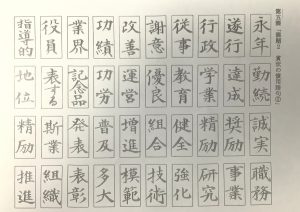 賞状の慣用語句②
永年 勤続 誠実 職務
遂行 達成 奨励 事業
行政 学業 精励 研究
従事 教育 健全 強化
謝意 優良 組合 技術
改善 運営 増進 模範
功績 功労 普及 多大
業界 記念品 発表 表彰
役員 表する 斯業 組織
指導的 地位 精励 推進